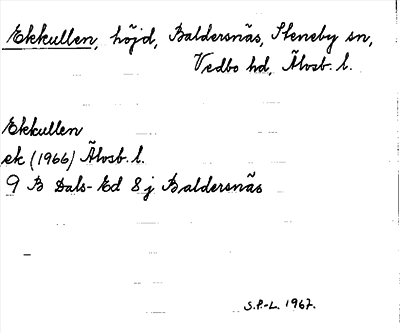 Ekkullen, höjd, Baldersnäs, Steneby sn,
Vedbo hd, Älvsb. l.
Ekkullen
ek (1966) Älvsb. l.
9 B Dals-Ed 8 j Baldersnäs
S.P.-L. 1967.